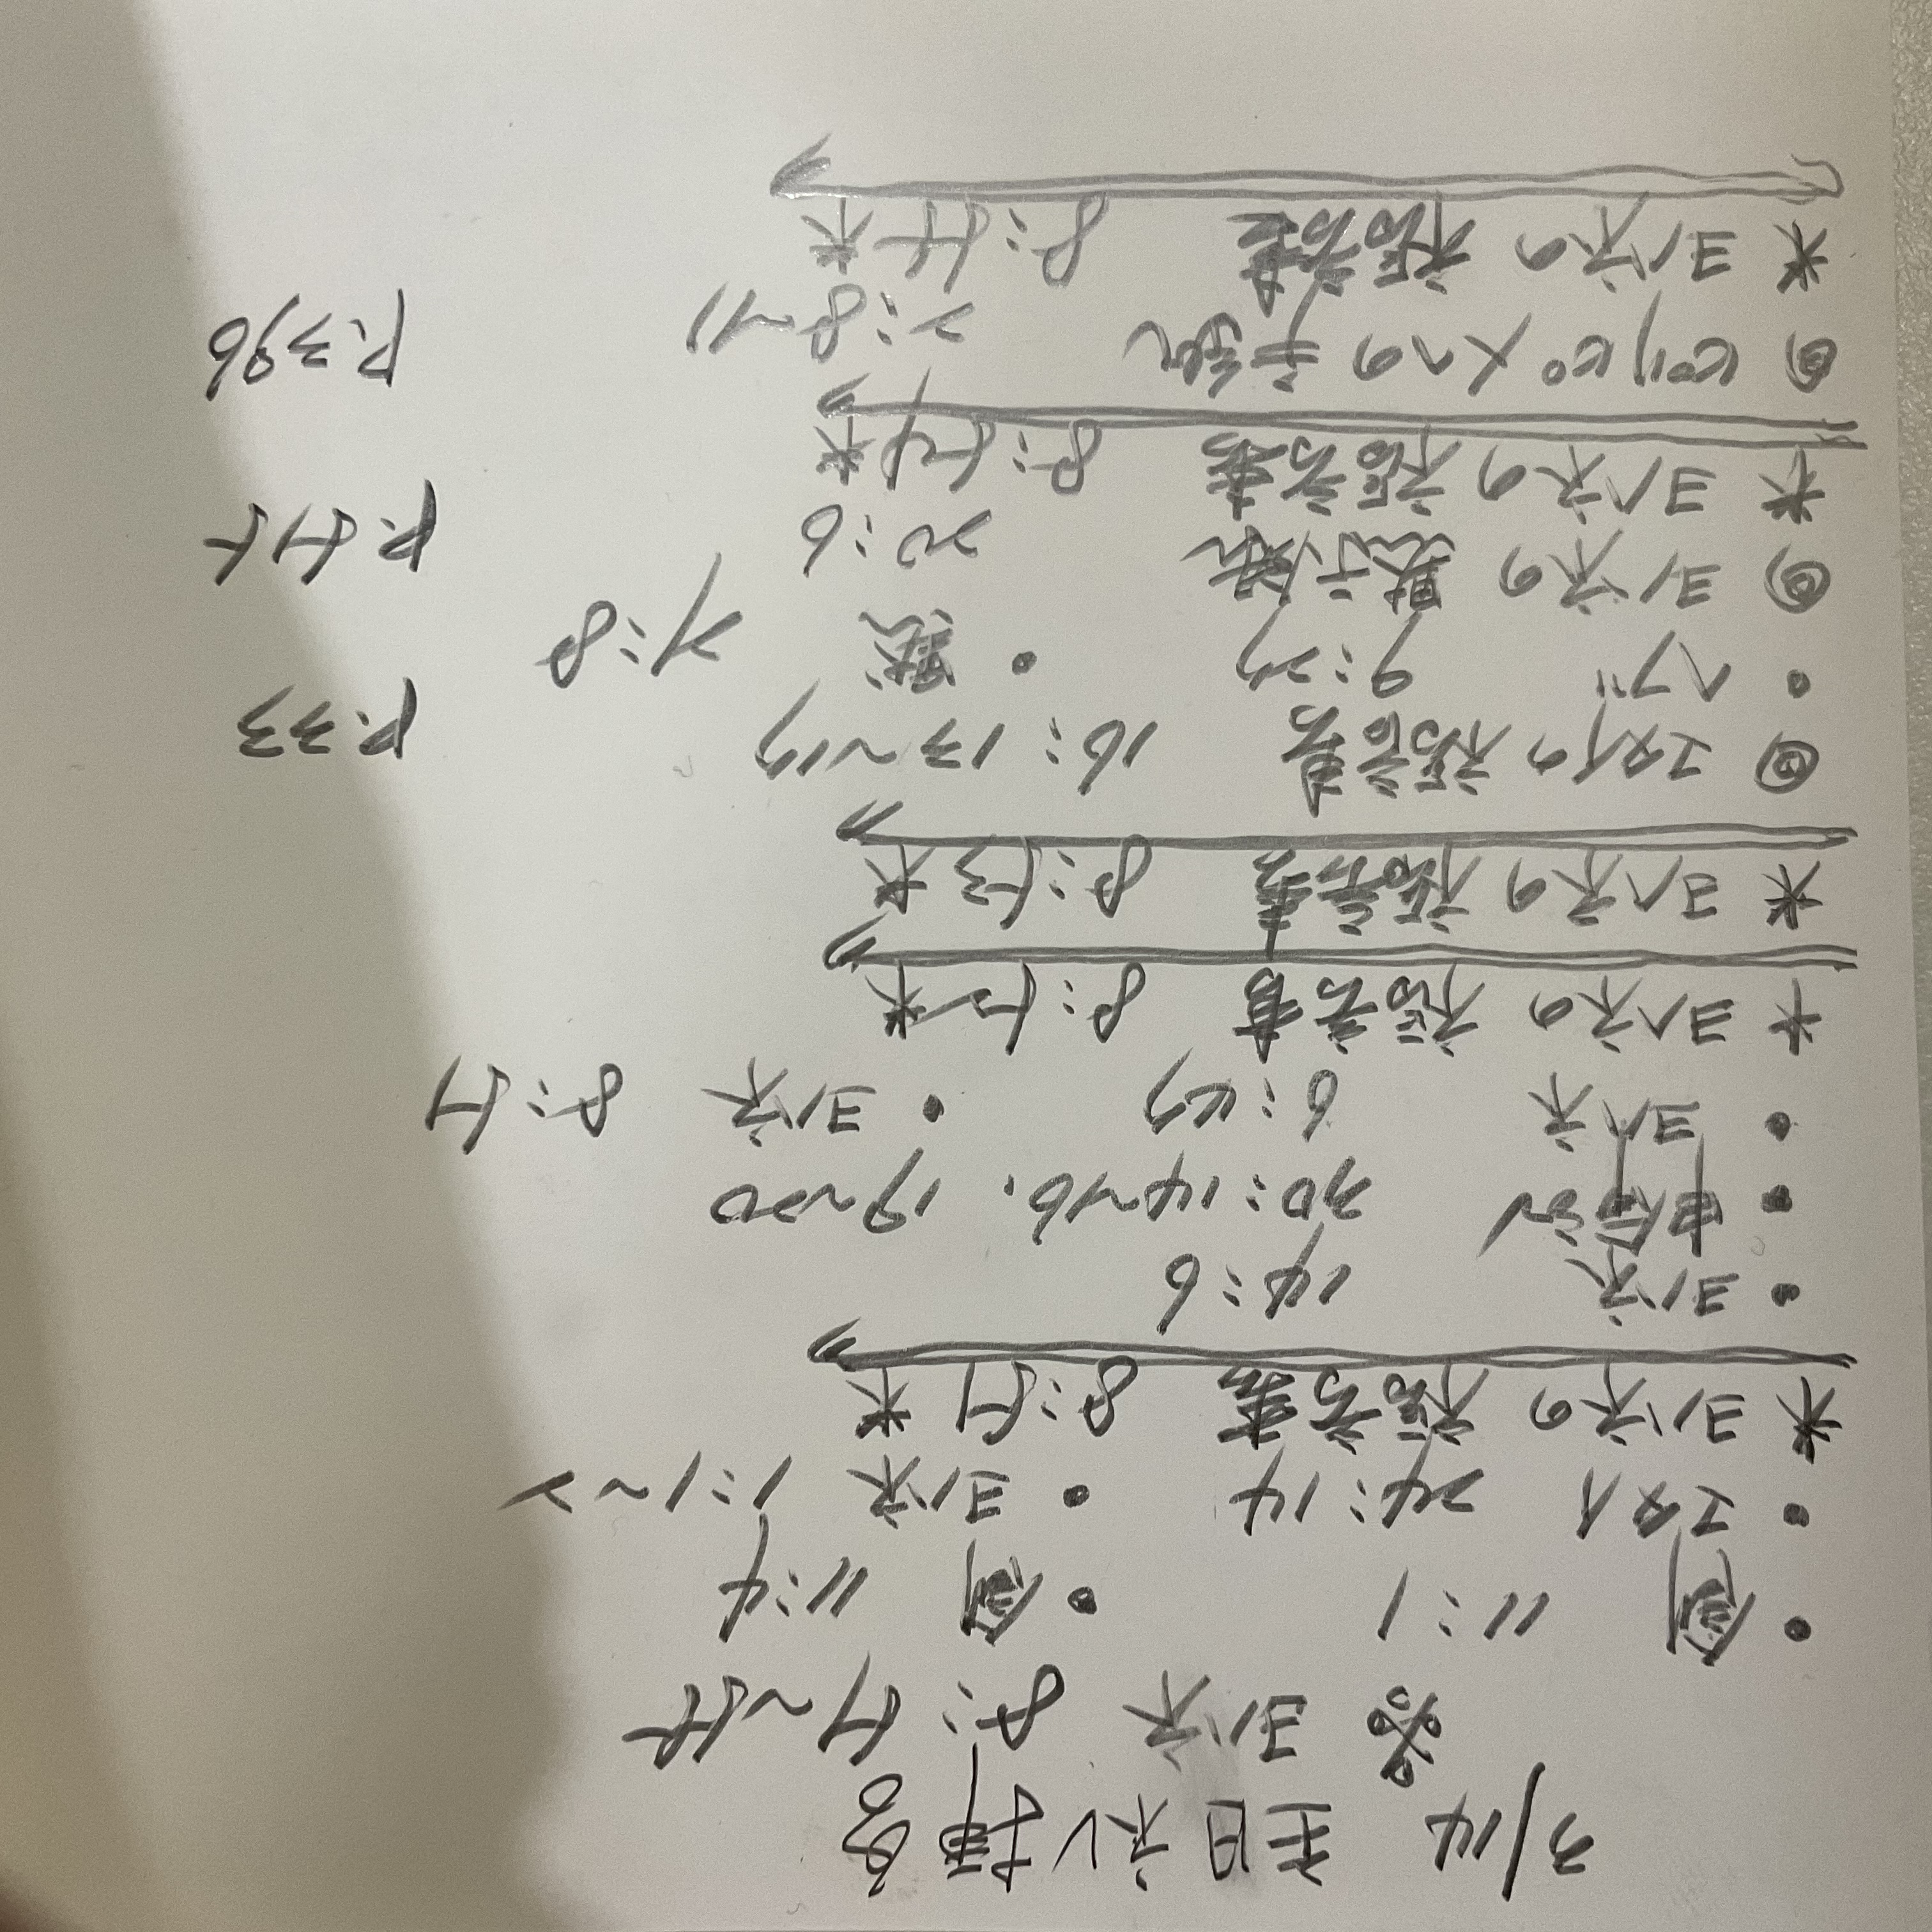 3/14 主日礼拝
ヨハネ 8:51~55
・創 11:1 ・創 11:4
・マタイ 24:14 ・ヨハネ 1:1~2
* ヨハネの福音書 8:51 *
・ヨハネ 14:6
・申命記 30:14~16. 19~20
・ヨハネ 6:47 ・ヨハネ 8:51
* ヨハネの福音書 8:52 *
* ヨハネの福音書 8:53 *
◎ マタイの福音書 16:13~17 P.33
・ヘブ 9:27 ・黙 21:8
◎ ヨハネの黙示録 20:6 P.515
* ヨハネの福音書 8:54 *
◎ ピリピ人への手紙 2:8~11 P.396
* ヨハネの福音書 8:55 *